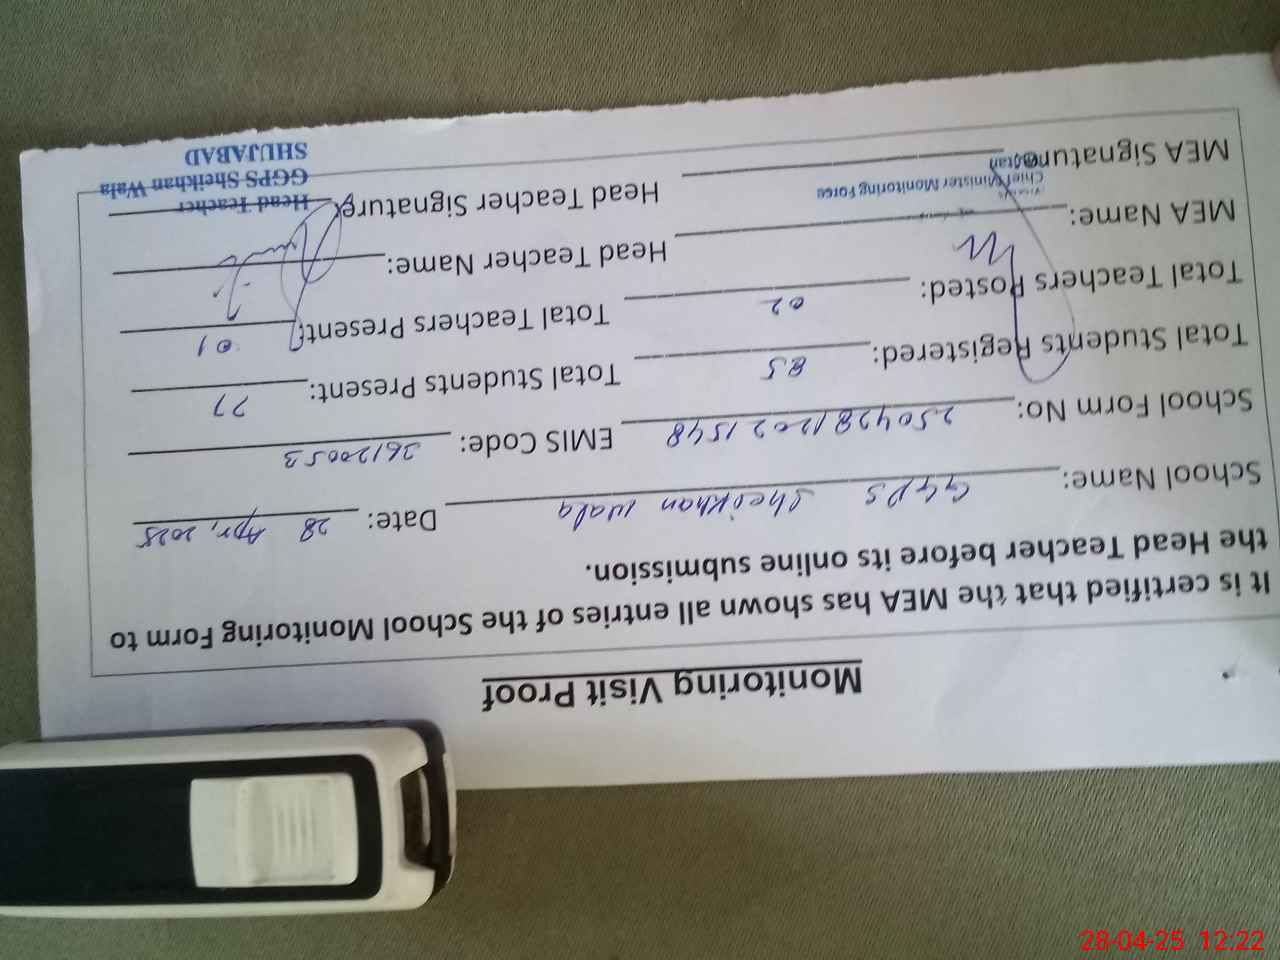 Monitoring Visit Proof
It is certified that the MEA has shown all entries of the School Monitoring Form to
the Head Teacher before its online submission.
School Name: GGPS Sheikhan Wala Date: 28 Apr, 2025
School Form No: 25042812021548 EMIS Code: 36120053
Total Students Registered: 85 Total Students Present: 77
Total Teachers Posted: 02 Total Teachers Present: 01
MEA Name: Head Teacher Name:
Chief Minister Monitoring Force
MEA Signature Head Teacher Signature
Head Teacher
GGPS Sheikhan Wala
SHUJABAD
28-04-25 12:22